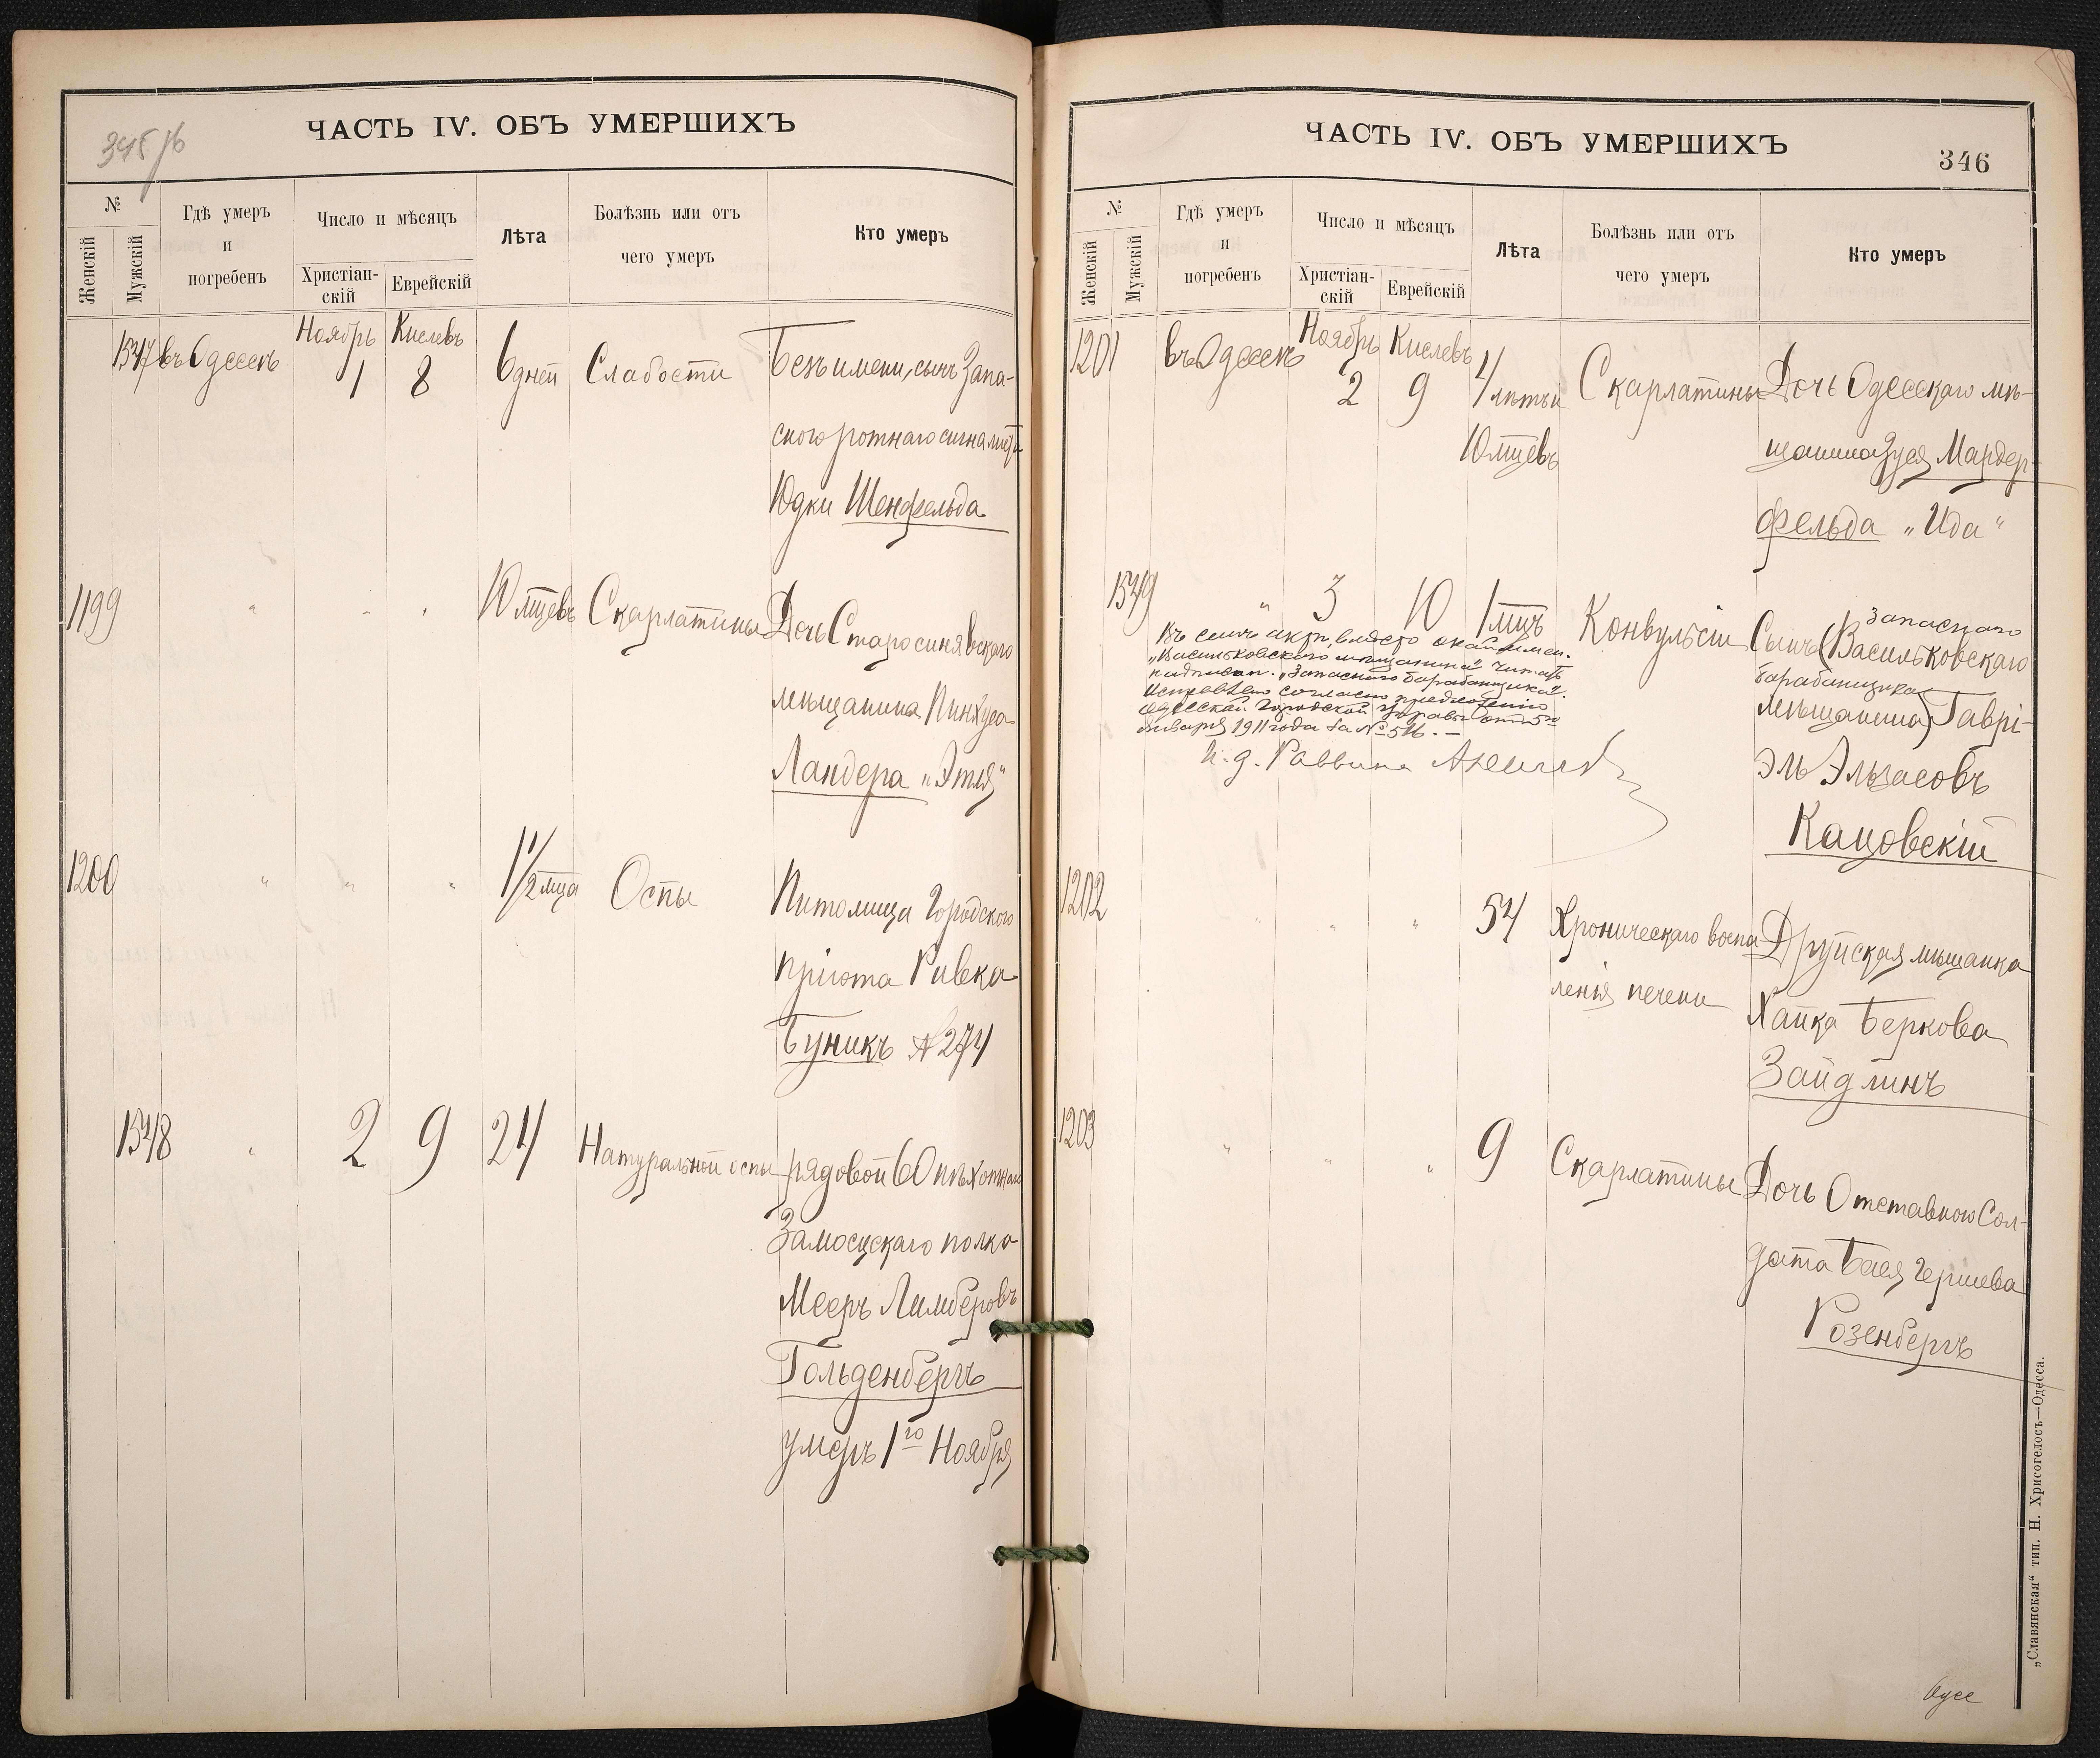 345 об
ЧАСТЬ IV. ОБЪ УМЕРШИХЪ
№
Женскій
Мужскій
Гдѣ умеръ
и
погребенъ
Число и мѣсяцъ
Христіан-
скій
Еврейскій
Лѣта
Болѣзнь или отъ
чего умеръ
Кто умеръ
1547 въ Одессѣ Ноябрь 1 Кислевъ 8 6 дней Слабости Безъ имени, сынъ Запа-
сного ротнаго сигналиста
Юдки Шенфельда
1199 " " " 10 мцевъ Скарлатины Дочь Старосинявскаго
мѣщанина Пинхуса
Ландера „Этля"
1200 " " " 1 1/2 мца Оспы Питомица Городского
пріюта Ривка
Буникъ №274
1548 " 2 9 24 Натуральной оспы рядовой 60 пѣхотнаго
Замосцскаго полка
Мееръ Лимберовъ
Гольденбергъ
умеръ 1го Ноября
ЧАСТЬ IV. ОБЪ УМЕРШИХЪ
346
№
Женскій
Мужскій
Гдѣ умеръ
и
погребенъ
Число и мѣсяцъ
Христіан-
скій
Еврейскій
Лѣта
Болѣзнь или отъ
чего умеръ
Кто умеръ
1201 въ Одессѣ Ноябрь 2 Кислевъ 9 4 лѣтъ и Скарлатины Дочь Одесскаго мѣ-
10 мцевъ щанина Зуся Мардер-
фельда „Ида"
1549 " 3 10 1 мцъ Конвульсіи Сынъ (Васильковскаго
запаснаго
барабанщика
мѣщанина) Гаврі-
эль Эльясовъ
Кацовскій
Въ семъ актѣ, вмѣсто
„Васильковскаго мѣщанина" читать
надписан. „Запаснаго барабанщика".
Исправлено согласно предложенію
Одесской Городской Управы отъ 5го
Января 1911 года за № 516. —
И. д. Раввина
1202 " " " 54 Хроническаго воспа-
ленія печени
Друйская мѣщанка
Хайка Беркова
Зайдлинъ
1203 " " " 9 Скарлатины Дочь Отставного Сол-
дата Бася Гершева
Розенбергъ
„Славянская" тип. Н. Хрисогелосъ—Одесса.